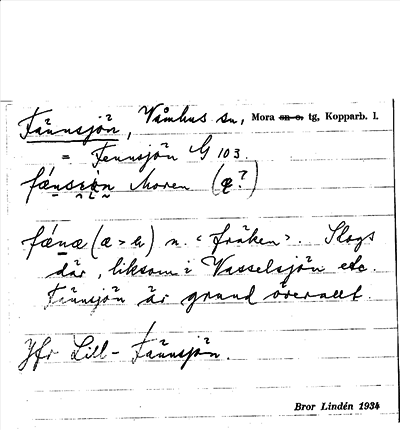 Fännsjön, Våmhus sn, Mora sn o. tg, Kopparb. l.
= Fennsjön G 103.
Moren (æ?)
(æ > ä) n. "fräken". Slogs
där, liksom i Vasselsjön etc.
Fännsjön är grund överallt.
Jfr Lill-Fännsjön.
Bror Lindén 1934